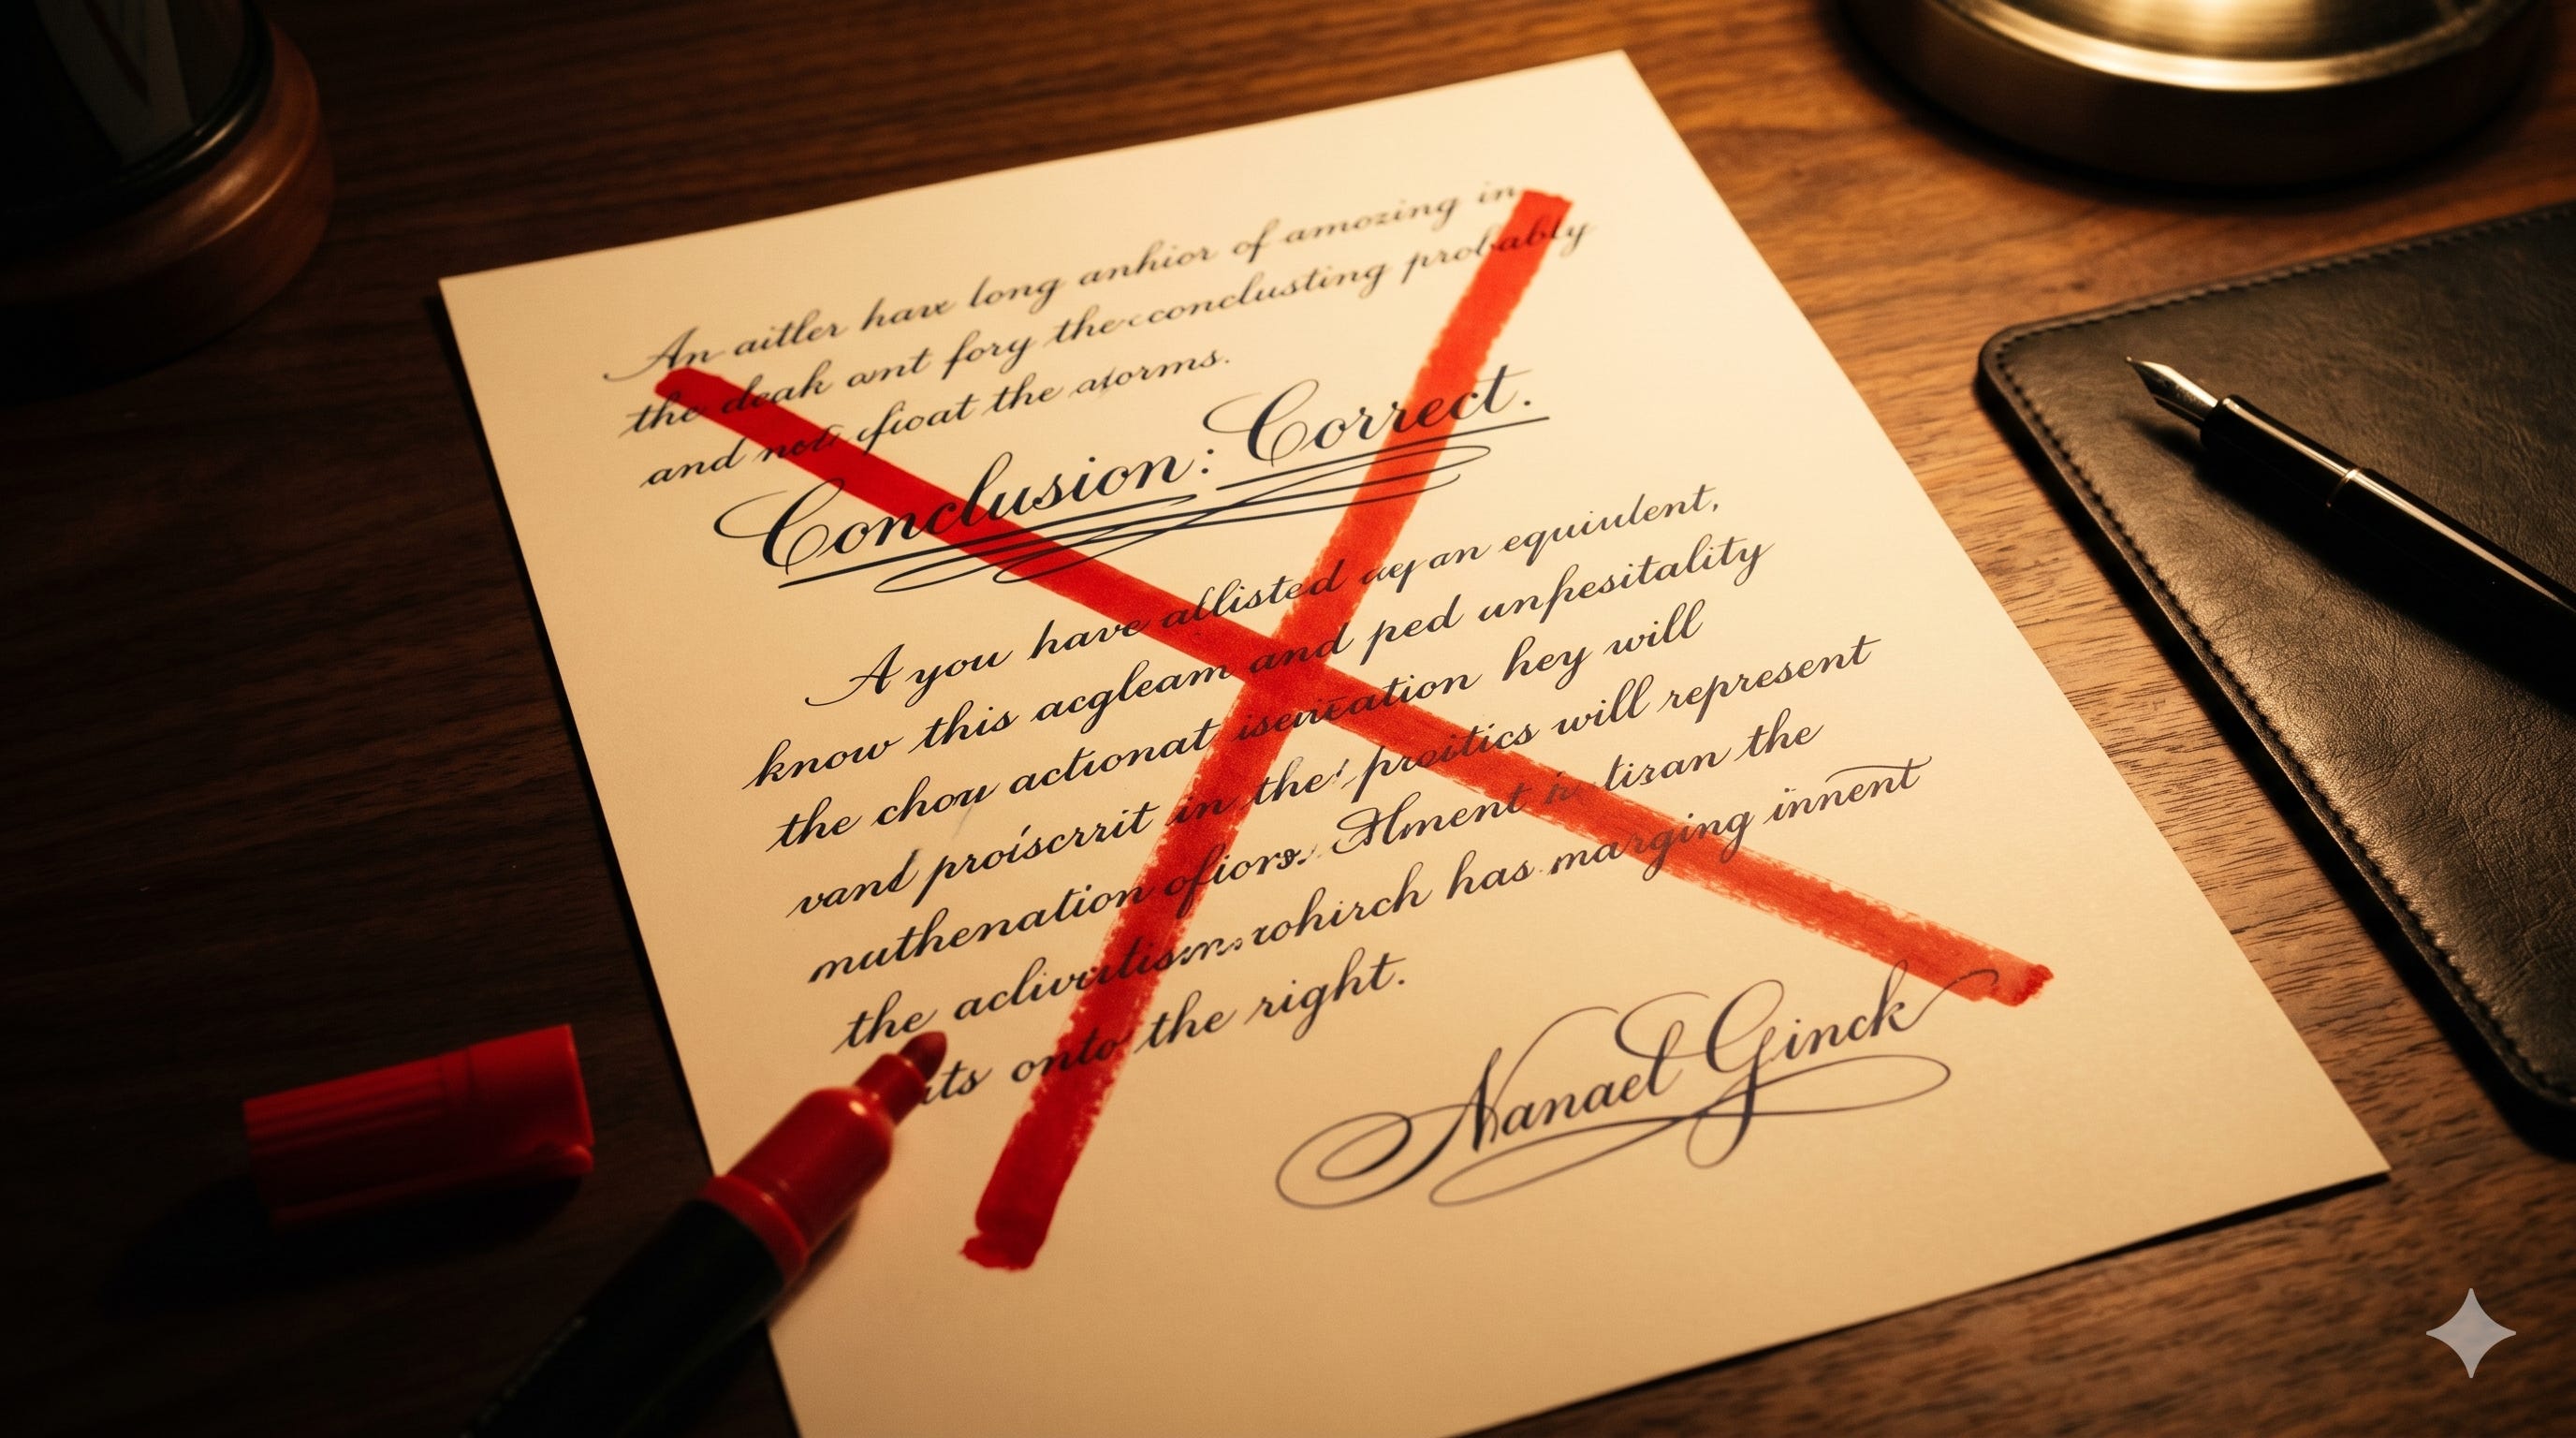 An aitler have long anhior of amozing in
the deak amt fory the conclusting probably
and not fioat the aforms.
Conclusion: Correct.
A you have allisted ay an equiulent,
know this acgleam and ped unpesitality
the chou actionat hey will
vand proiscrrit in the proitics will represent
muthenation ofiors. Hment tisan the
the rohirch has marging innent
onto the right.
Nanael Ginck